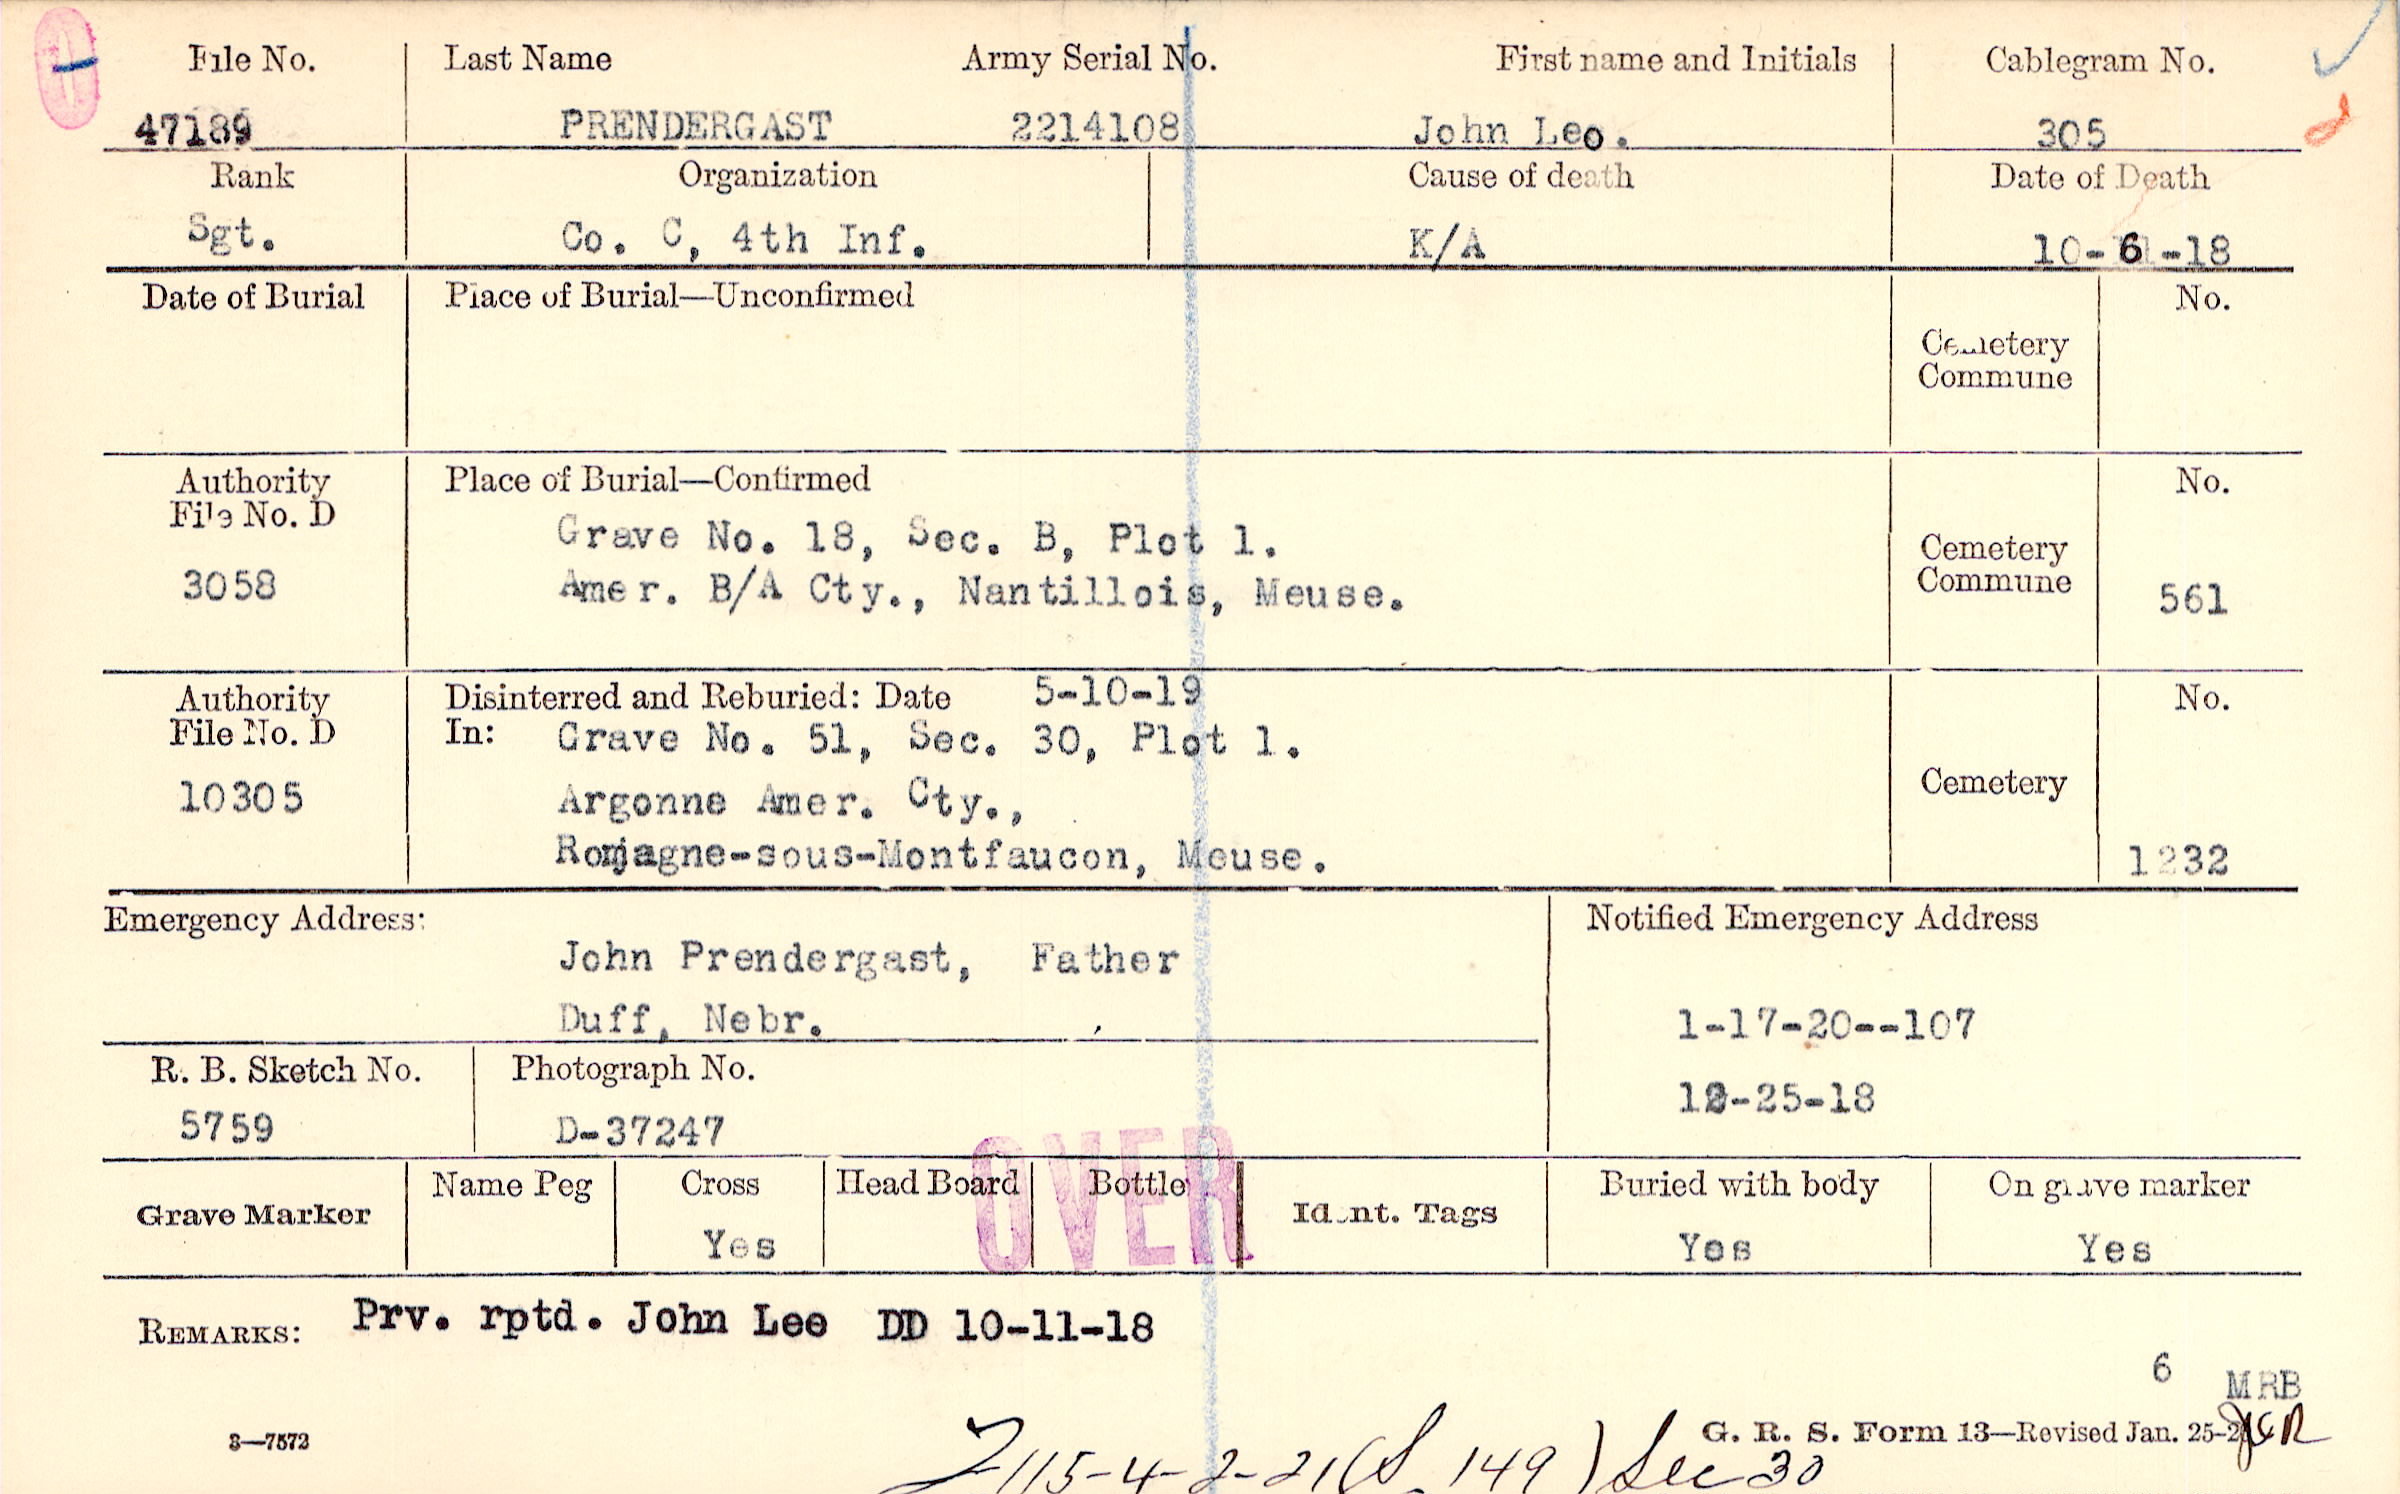 File No. Last Name Army Serial No. First name and Initials Cablegram No.
47189 PRENDERGAST 2214108 John Leo. 305
Rank Organization Cause of death Date of Death
Sgt. Co. C, 4th Inf. K/A 10-6-18
Date of Burial Place of Burial—Unconfirmed No.
Cemetery
Commune
Authority Place of Burial—Confirmed No.
File No. D
Grave No. 18, Sec. B, Plot 1.
Cemetery
3058 Amer. B/A Cty., Nantillois, Meuse. Commune 561
Authority Disinterred and Reburied: Date 5-10-19 No.
File No. D In: Grave No. 51, Sec. 30, Plot 1.
10305 Argonne Amer. Cty., Cemetery
Romagne-sous-Montfaucon, Meuse. 1232
Emergency Address: Notified Emergency Address
John Prendergast, Father
Duff, Nebr. 1-17-20--107
R. B. Sketch No. Photograph No. 12-25-18
5759 D-37247
OVER
Grave Marker Name Peg Cross Head Board Bottle Ident. Tags Buried with body On grave marker
Yes Yes Yes
REMARKS: Prv. rptd. John Lee DD 10-11-18
6 MRB
3—7572 G. R. S. Form 13—Revised Jan. 25-2
115-4-2-21 (S. 149) Sec 30